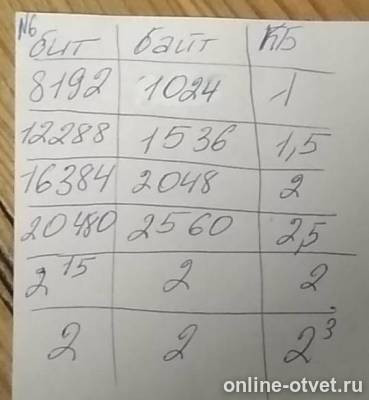 №6
бит байт КБ
8192 1024 1
12288 1536 1,5
16384 2048 2
20480 2560 2,5
2¹⁵ 2 2
2 2 2³
online-otvet.ru